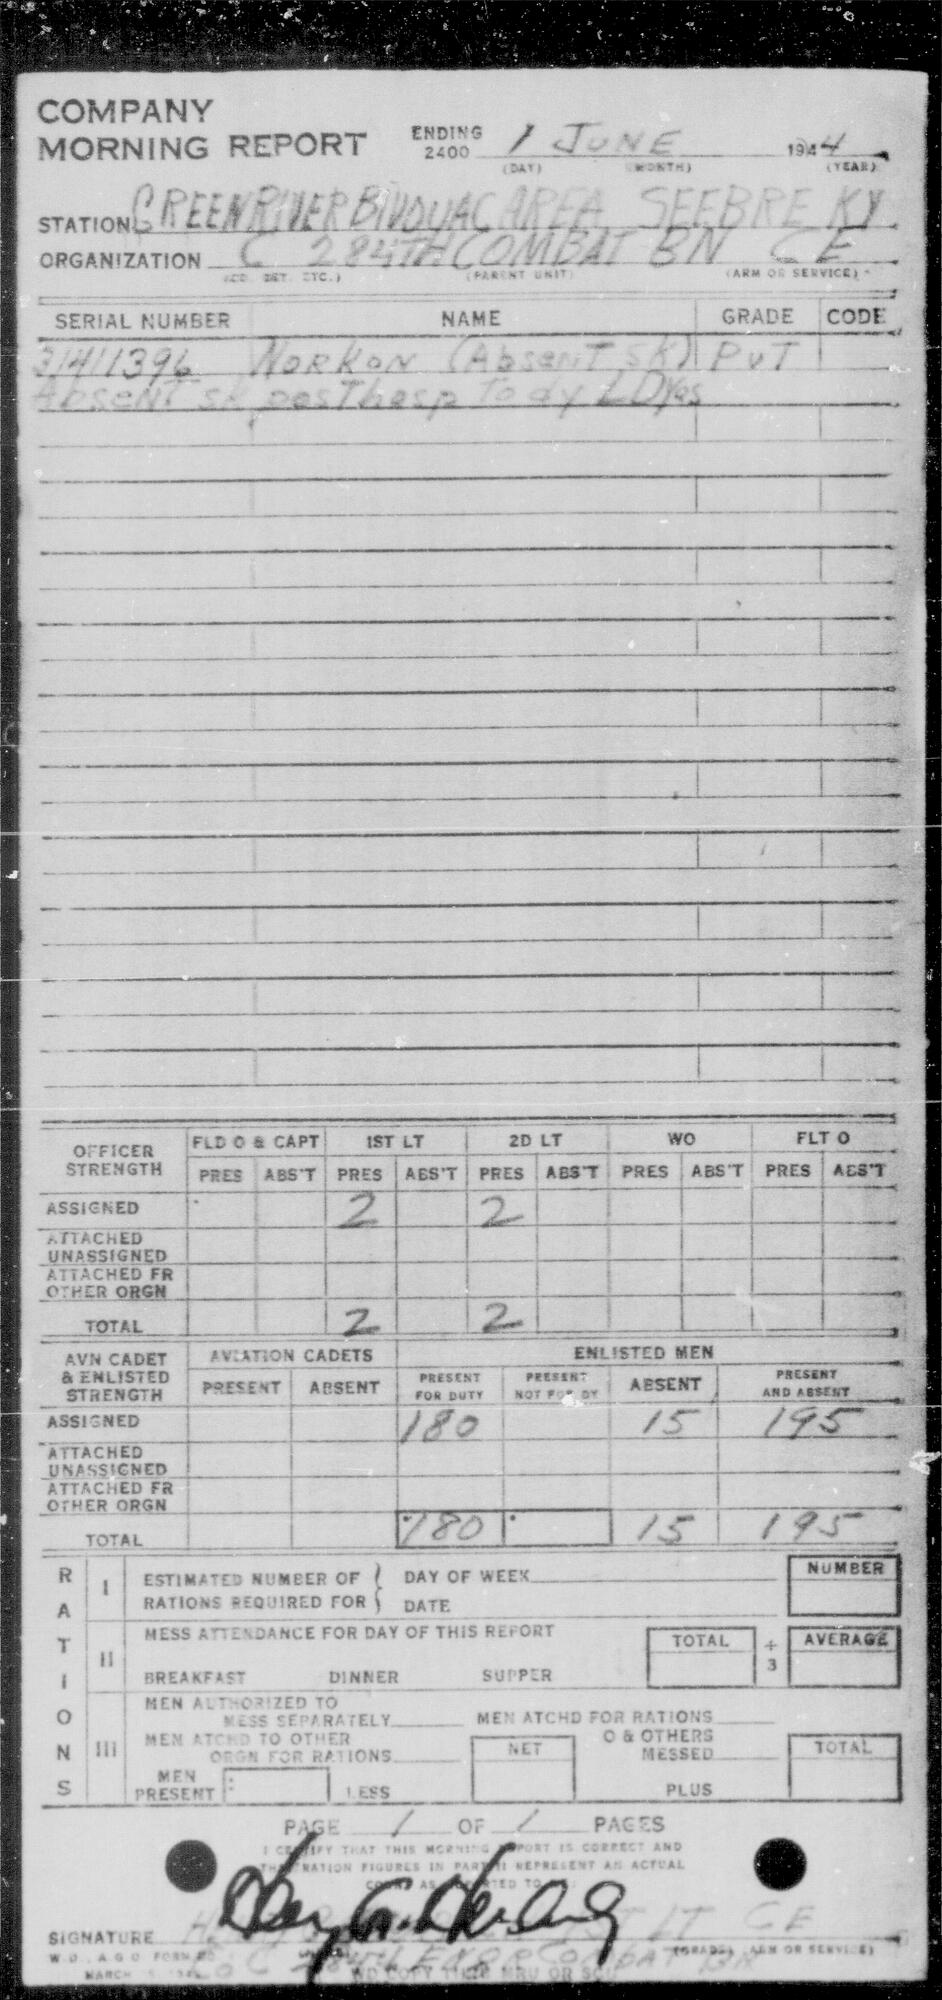 COMPANY
MORNING REPORT ENDING 2400 1 JUNE 1944
(DAY) (MONTH) (YEAR)
STATION GREEN RIVER BIVOUAC AREA SEEBRE KY
ORGANIZATION C 284TH COMBAT BN CE
(CO. DET. ETC.) (PARENT UNIT) (ARM OR SERVICE)
SERIAL NUMBER NAME GRADE CODE
31411396 Norkon (Absent SK) PVT
Absent sk post hosp to dy LD Yes
OFFICER STRENGTH FLD O & CAPT 1ST LT 2D LT WO FLT O
PRES ABS'T PRES ABS'T PRES ABS'T PRES ABS'T PRES ABS'T
ASSIGNED 2 2
ATTACHED UNASSIGNED
ATTACHED FR OTHER ORGN
TOTAL 2 2
AVN CADET & ENLISTED STRENGTH AVIATION CADETS ENLISTED MEN
PRESENT ABSENT PRESENT FOR DUTY PRESENT NOT FOR DY ABSENT PRESENT AND ABSENT
ASSIGNED 180 15 195
ATTACHED UNASSIGNED
ATTACHED FR OTHER ORGN
TOTAL 180 15 195
RATIONS
I ESTIMATED NUMBER OF RATIONS REQUIRED FOR DAY OF WEEK DATE NUMBER
II MESS ATTENDANCE FOR DAY OF THIS REPORT TOTAL ÷ 3 AVERAGE
BREAKFAST DINNER SUPPER
III MEN AUTHORIZED TO MESS SEPARATELY MEN ATCHD FOR RATIONS
MEN ATCHD TO OTHER ORGN FOR RATIONS NET O & OTHERS MESSED TOTAL
MEN PRESENT LESS PLUS
PAGE 1 OF 1 PAGES
I CERTIFY THAT THIS MORNING REPORT IS CORRECT AND
THE RATION FIGURES IN PART II REPRESENT AN ACTUAL
COUNT AS REPORTED TO ME:
SIGNATURE 1ST LT CE
W.D., A.G.O. FORM NO. (GRADE) (ARM OR SERVICE)
MARCH Co C 284TH ENGR COMBAT BN
WD COPY THRU MRU OR SCU